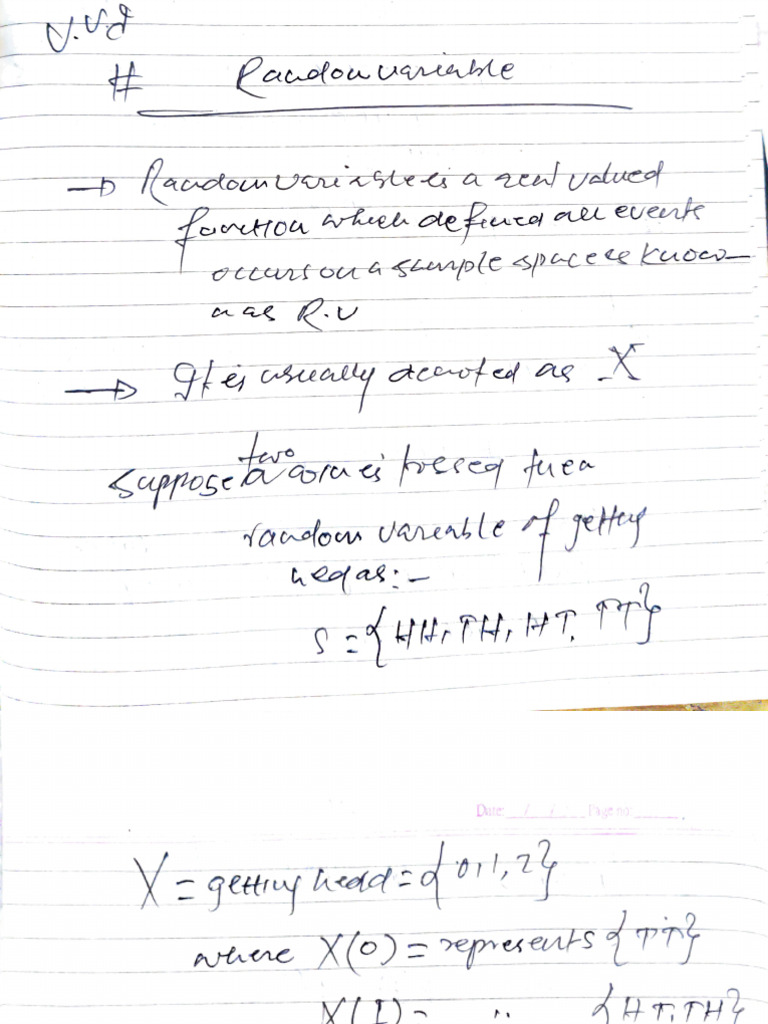 V.V.I
# Random variable
→ Random variable is a real valued
function which defined all events
occurs on a sample space is know
n as R.V
→ It is usually denoted as X
two
Suppose a coin is tossed then
random variable of getting
head as:-
S = {HH, TH, HT, TT}
Date: / / Page no:
X = getting head = {0, 1, 2}
where X(0) = represents {TT}
X(1) = ,, {HT, TH}